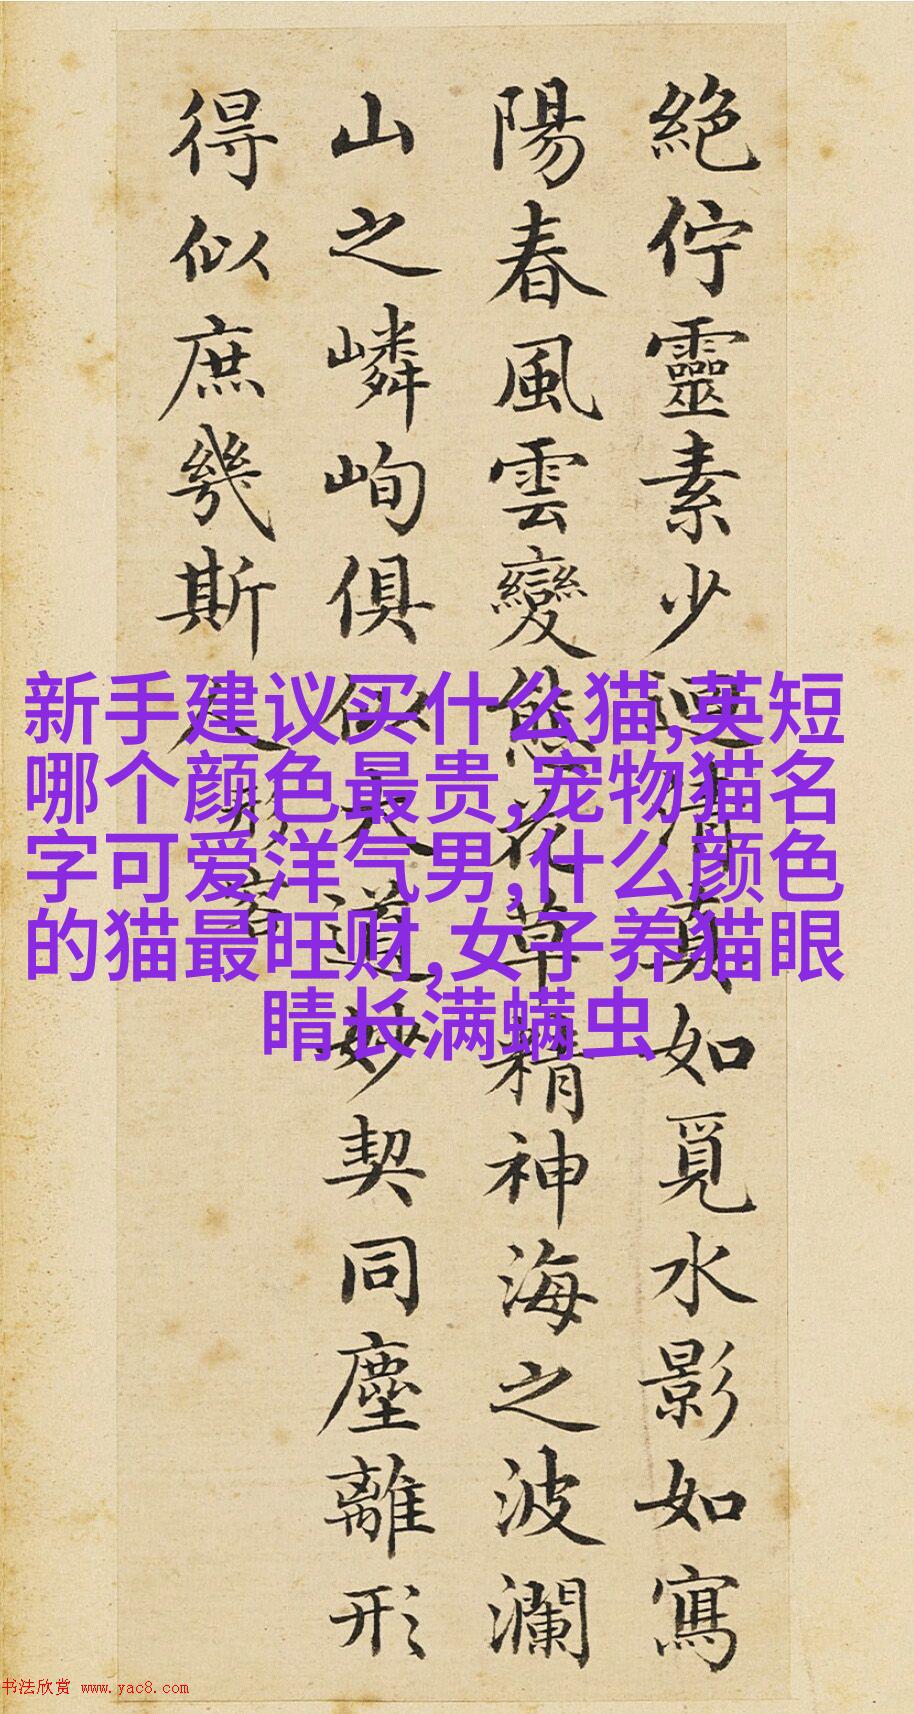 絕佇靈素少迴清真如覓水影如寫
陽春風雲變態花草精神海之波瀾
山之嶙峋俱似大道妙契同塵離形
得似庶幾斯人形容
新手建议买什么猫,英短
哪个颜色最贵,宠物猫名
字可爱洋气男,什么颜色
的猫最旺财,女子养猫眼
睛长满螨虫
书法欣赏 www.yac8.com